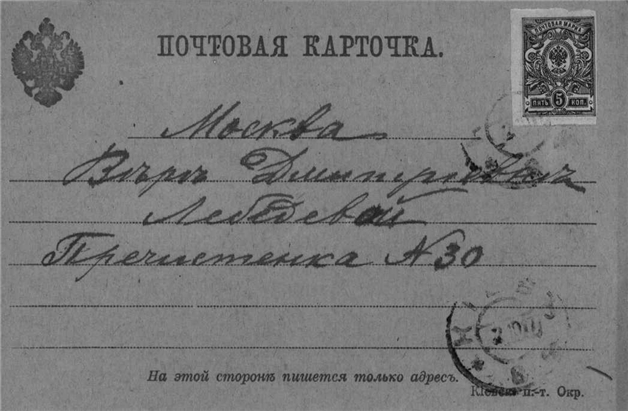 ПОЧТОВАЯ КАРТОЧКА.
ПОЧТОВАЯ МАРКА
ПЯТЬ 5 КОП.
Москва
Вѣрѣ Дмитріевнѣ
Лебедевой
Пречистенка N 30
На этой сторонѣ пишется только адресъ.
Кіевск. п.-т. Окр.